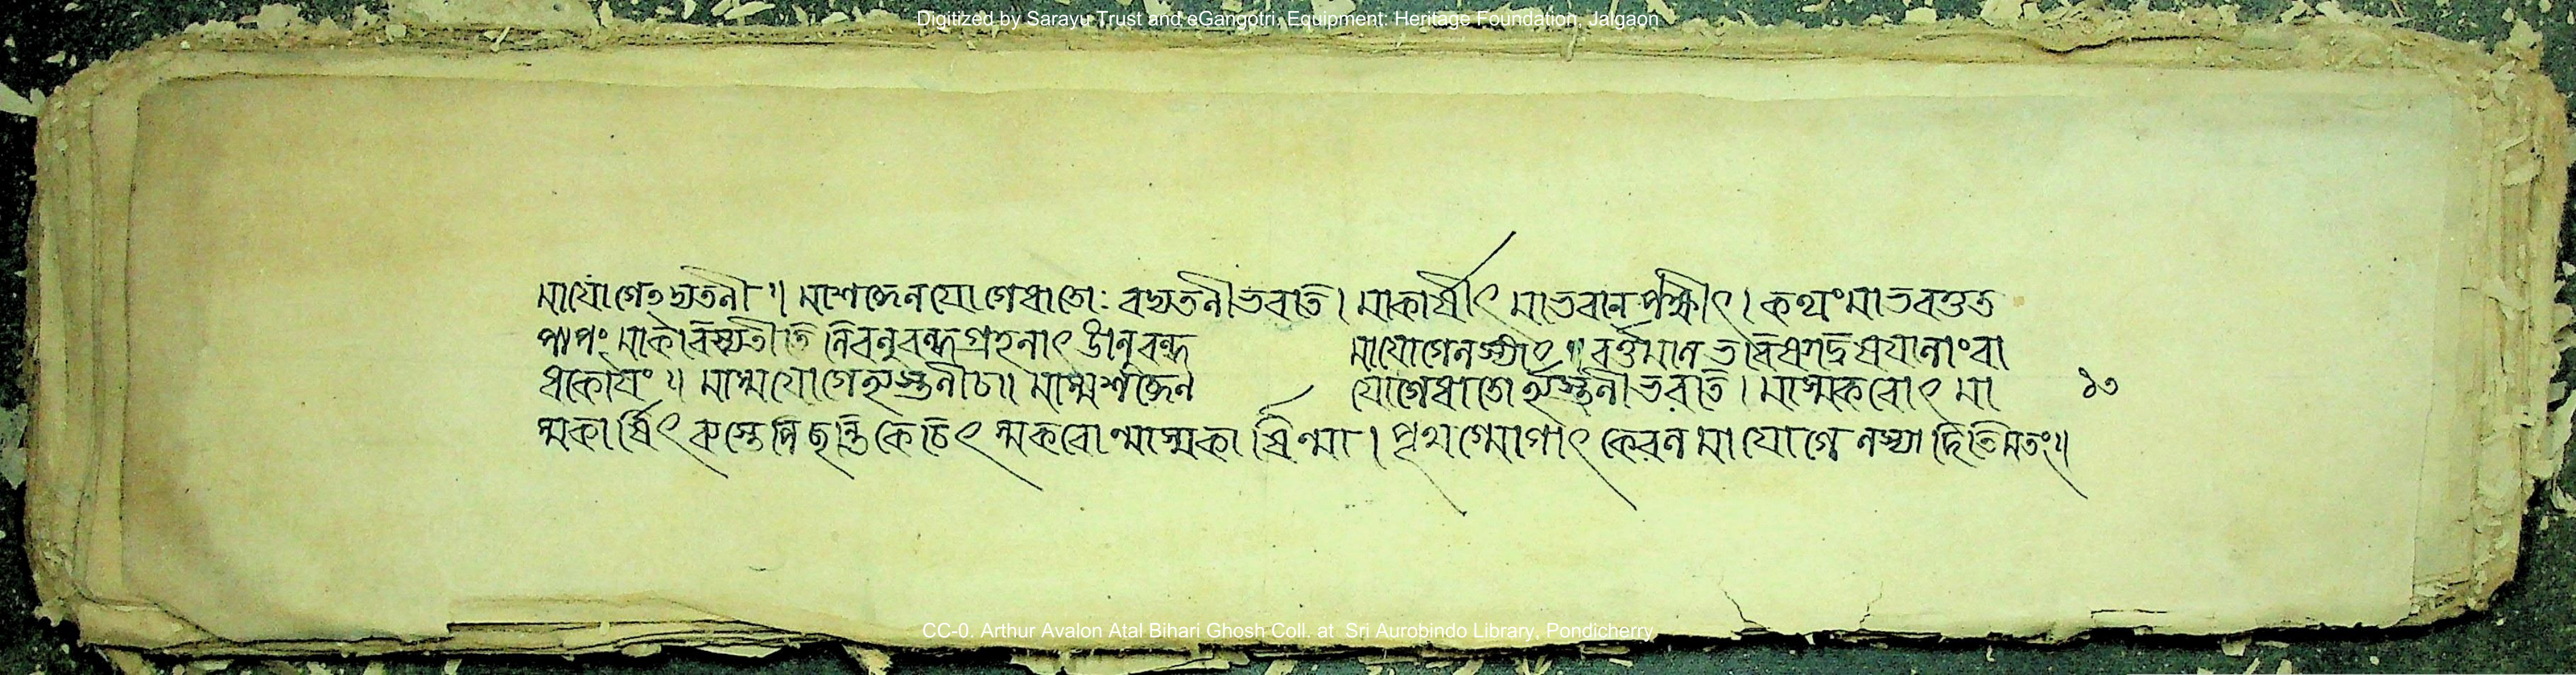 Digitized by Sarayu Trust and eGangotri. Equipment: Heritage Foundation, Jalgaon
মাযোগেঽদ্যতনী ৷৷ মাশব্দেনযোগেধাতোঃ বদ্যতনীভবতি। মাকার্ষীৎ মাভবানপক্ষীৎ। কথংমাভবতুত
পাপং মাকরিষ্যতীতি নিবনুবন্ধগ্রহনাৎ ঙানুবন্ধ মাযোগেনস্যাৎ ৷৷ বর্ত্তমান ভবিষ্যদ্ব
ধকোযং ৷৷ মাস্মযোগেহ্যস্তনীচ৷৷ মাস্মশব্দেন যোগেধাতোর্হ্যস্তনীভবতি। মাস্মকরোৎ মা ১৩
স্মকার্ষিৎ কেচিৎ স্মকরোন্মাস্মকার্ষিন্মা। পৃথগ্যোগাৎ কেবল মাযোগে নস্যাদিতিমতং৷৷
CC-0. Arthur Avalon Atal Bihari Ghosh Coll. at Sri Aurobindo Library, Pondicherry